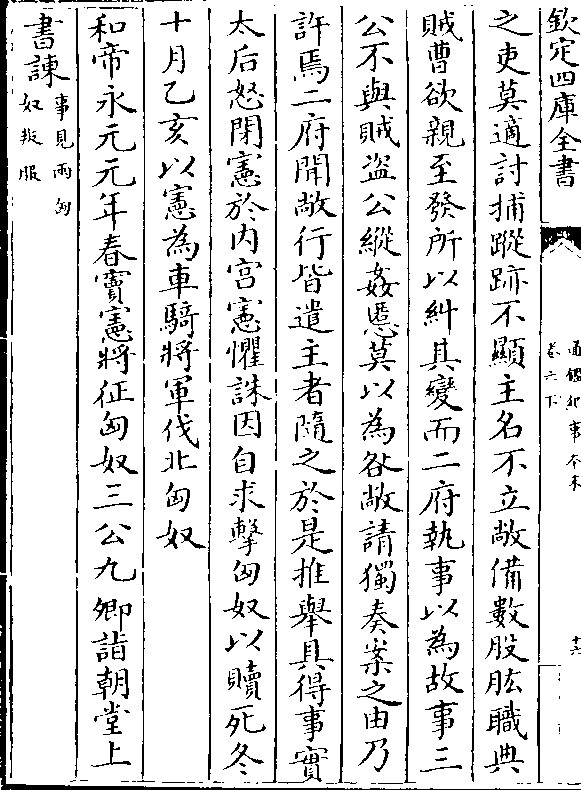 欽定四庫全書
通鑑紀事本末
卷六下
十六
之吏莫適討捕蹤跡不顯主名不立敞備數股肱職典
賊曹欲親至發所以糾其變而二府執事以為故事三
公不與賊盜公縱姦慝莫以為咎敞請獨奏案之由乃
許焉二府聞敞行皆遣主者隨之於是推舉具得事實
太后怒閉憲於内宫憲懼誅因自求擊匈奴以贖死冬
十月乙亥以憲為車騎將軍伐北匈奴
和帝永元元年春竇憲將征匈奴三公九卿詣朝堂上
書諫事見兩匈
奴叛服